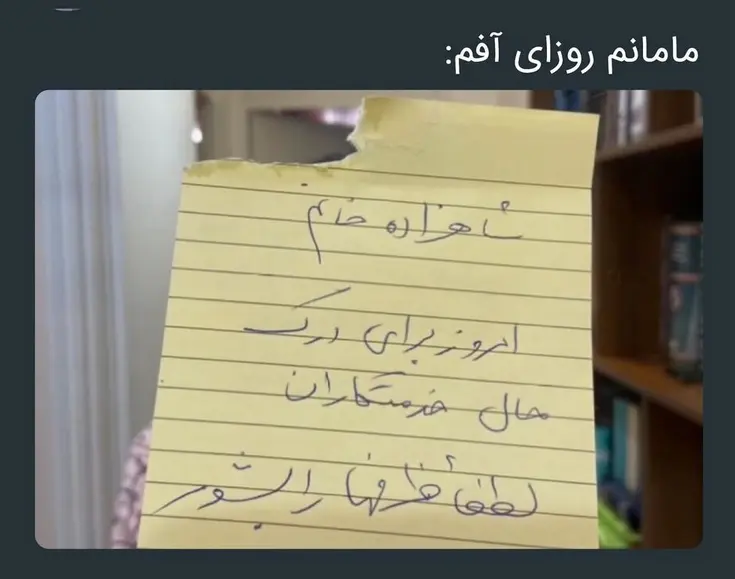 مامانم روزای آفم:
شاهزاده خانم
امروز برای درک
حال خدمتکاران
لطفاً ظرفها را بشور